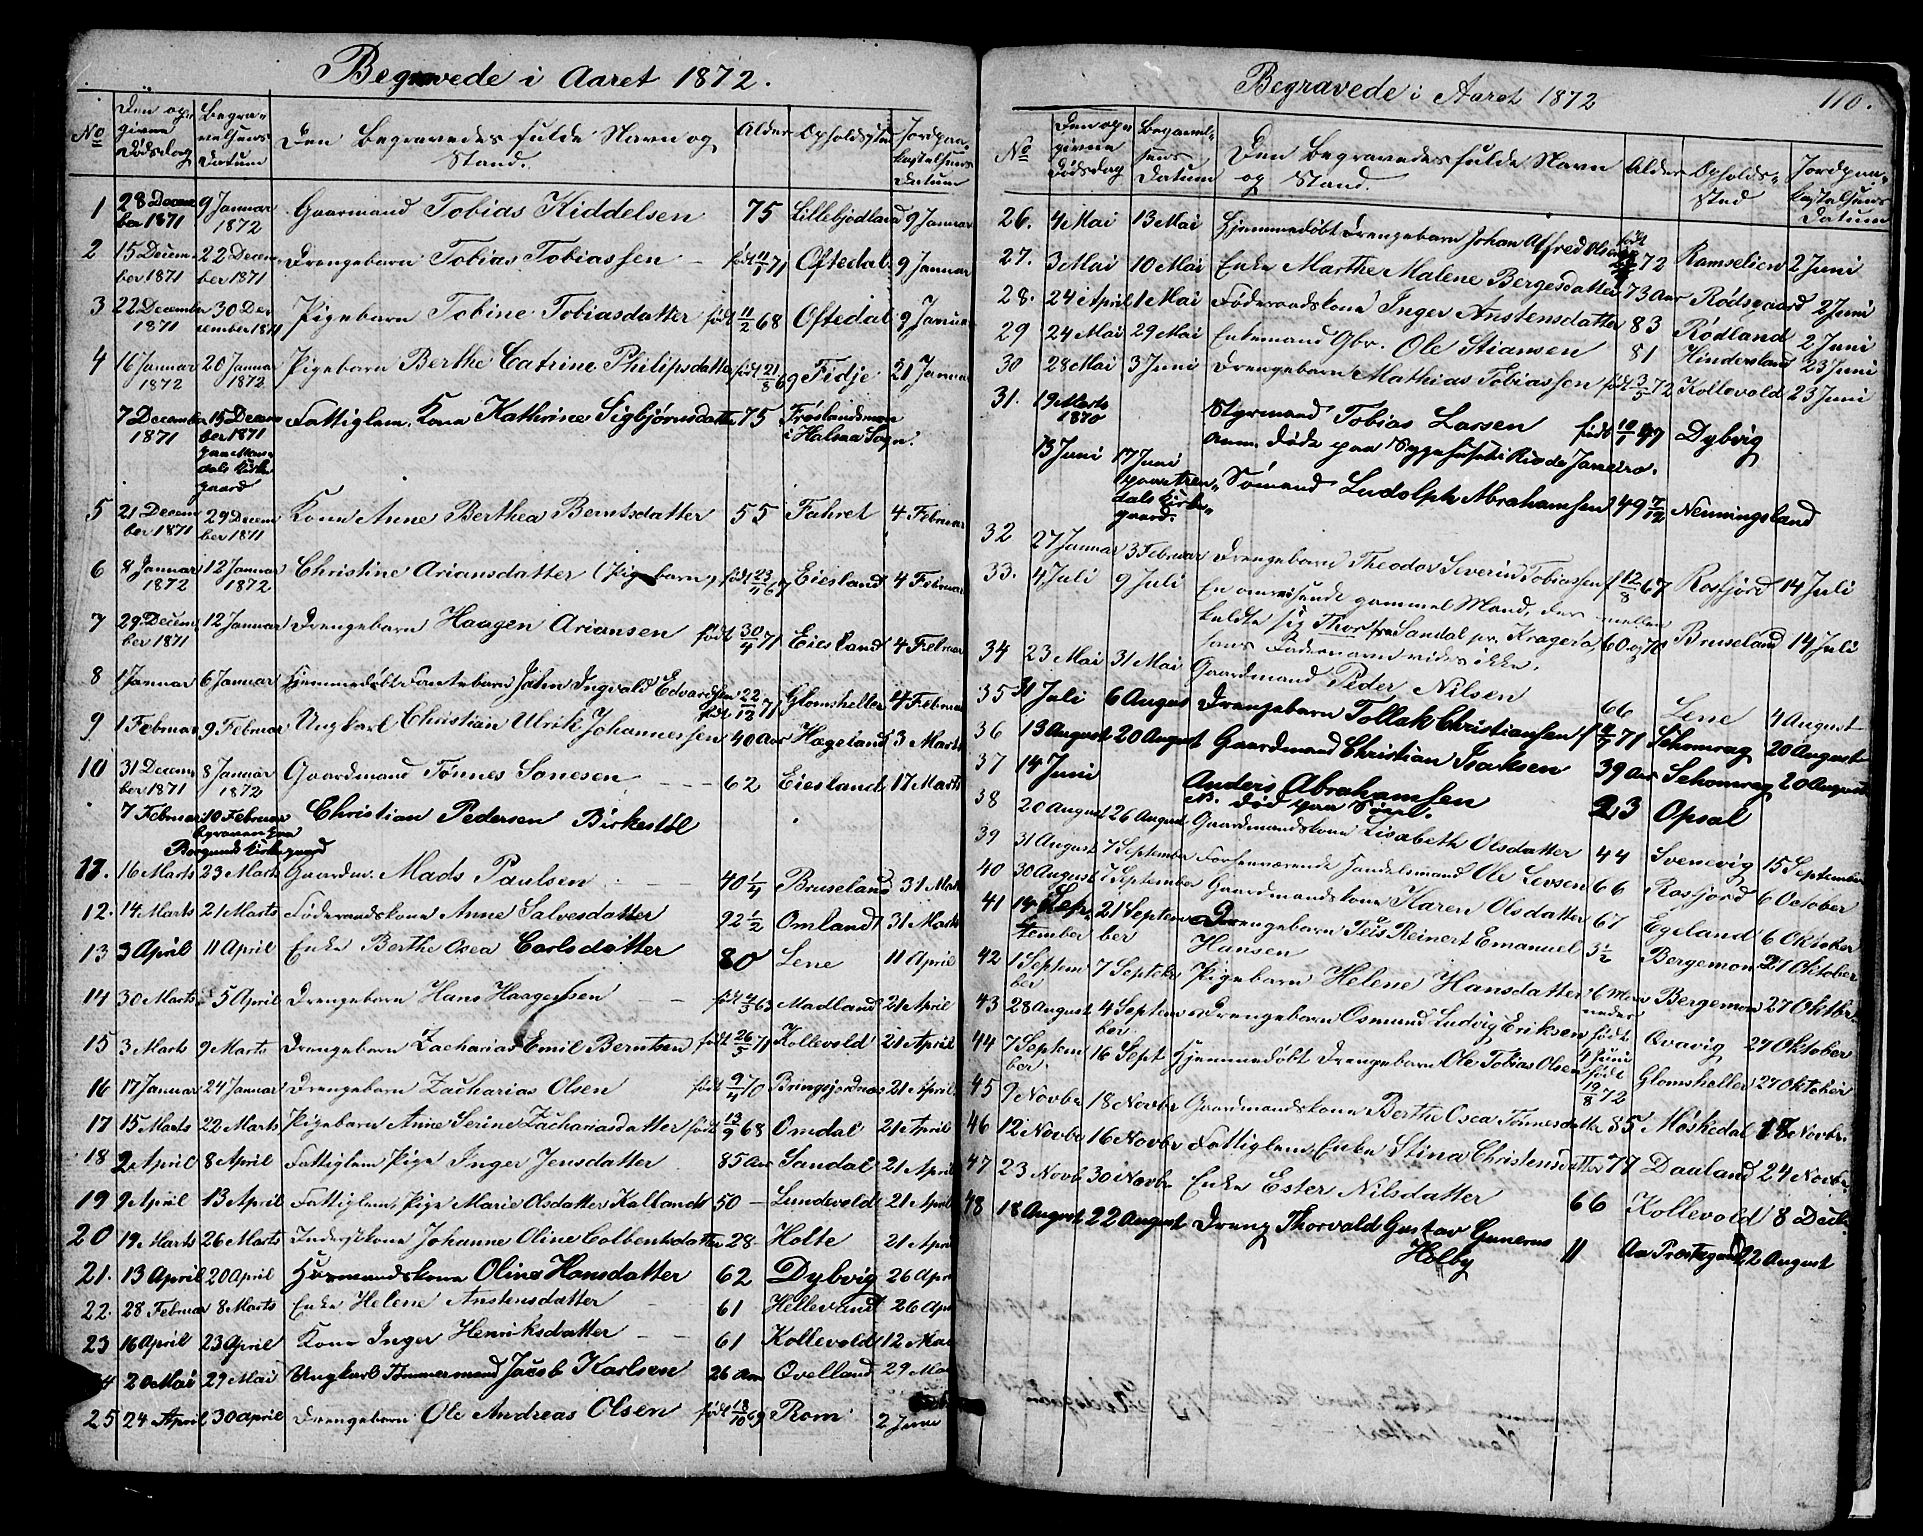 Begravede i Aaret 1872.
No
Den opgivne Dødsdag
Begravelsens Datum
Den Begravedes fulde Navn og Stand.
Alder
Opholdsste
Jordpaakastelsens Datum
1 28 December 1871 9 Januar 1872 Gaarmand Tobias Kiddelsen 75 Lillebjodland 9 Januar
2 15 December 1871 22 December 1871 Drengebarn Tobias Tobiassen født 71 Oftedal 9 Januar
3 22 December 1871 30 December 1871 Pigebarn Tobine Tobiasdatter født 11/2 68 Oftedal 9 Januar
4 16 Januar 1872 20 Januar 1872 Pigebarn Berthe Catrine Philipsdatter født 21/8 69 Fidje 21 Januar
7 December 1871 15 December 1871 paa Mandals Kirkegaard Fattiglem, Kone Kathrine Sigbjørnsdatter 75 Frøslandsmoen i Halsaa Sogn.
5 21 December 1871 29 December 1871 Kone Anne Berthea Berntsdatter 55 Fahret 4 Februar
6 8 Januar 1872 12 Januar 1872 Christine Ariansdatter (Pigebarn) født 23/4 67 Eiesland 4 Februar
7 29 December 1871 12 Januar Drengebarn Haagen Ariansen født 30/4 71 Eiesland 4 Februar
8 1 Januar 6 Januar Hjemmedøbt John Ingvald Edvardsen født 22/12 71 Glomsheller 4 Februar
9 1 Februar 9 Februar Ungkarl Christian Ulrik Johannessen 40 Aar Hægeland 3 Marts
10 31 December 1871 8 Januar 1872 Gaardmand Tønnes Sonesen 62 Eiesland 17 Marts
7 Februar 10 Februar Begraven paa Borgunds Kirkegaard Christian Pedersen Birkestøl
11. 16 Marts 23 Marts Gaardm. Mads Paulsen 40 1/4 Bruseland 31 Mar
12. 14 Marts 21 Marts Føderaadskone Anne Salvesdatter 92 1/2 Omland 31 Mar
13 3 April 11 April Enke Berthe Osea Carlsdatter 80 Lene 11 April
14 30 Marts 5 April Drengebarn Hans Haagensen født 63 Madland 21 April
15 3 Marts 9 Marts Drengebarn Zacharias Emil Berntsen født 26/5 71 Kollevold 21 April
16 17 Januar 24 Januar Drengebarn Zacharias Olsen født 9/4 70 Bringsjordnes 21 April
17 15 Marts 22 Marts Pigebarn Anne Serine Zachariasdatter født 13/9 68 Omdal 21 April
18 2 April 8 April Fattiglem Pige Inger Jensdatter 85 Aar Sandal 21 April
19 9 April 13 April Fattiglem Pige Marie Olsdatter Kalland 50 Lundevold 21 April
20 19 Marts 26 Marts Inderstkone Johanne Oline Colbentsdatter 28 Holte 21 Apr
21. 13 April 20 April Huusmandskone Oline Hansdatter 62 Dybvig 26 Ap
22. 28 Februar 8 Marts Enke Helene Anstensdatter 61 Hellevand 26 Apr
23 16 April 23 April Kone Inger Henriksdatter 61 Kollevold 12 Mai
24 20 Mai 29 Mai Ungkarl Tømmermand Jacob Karlsen 26 Aar Qvelland 29 Mai
25 24 April 30 April Drengebarn Ole Andreas Olsen født 18/10 69 Rom 2 Juni
Begravede i Aaret 1872
110.
No
Den opgivne Dødsdag
Begravelsens Datum
Den Begravedes fulde Navn og Stand.
Alder
Opholds-Sted
Jordpaakastelsens Datum
26. 4 Mai 13 Mai Hjemmedøbt Drengebarn Johan Alfred Olsen født 72 Ramselien 2 Juni
27. 3 Mai 10 Mai Enke Marthe Malene Bergesdatter 73 Aar Rødsgaard 2 Juni
28. 24 April 1 Mai Føderaadskone Inger Anstensdatter 83 Rødland 2 Juni
29 24 Mai 29 Mai Enkemand Gbr. Ole Stiansen 81 Hindersland 23 Juni
30 28 Mai 3 Juni Drengebarn Mathias Tobiassen født 3/5 72 Kollevold 23 Juni
31. 19 Marts 1870 Styrmand Tobias Larsen født 10/1 47 Dybvig
Anm. døde paa Sygehuset i Rio de Janeiro.
13 Juni 17 Juni paa Arendals Kirkegaard. Sømand Ludolph Abrahamsen 49 7/12 Nenningsland
32 27 Januar 3 Februar Drengebarn Theodor Severin Tobiassen f 12/8 67 Rosfjord 14 Juli
33. 4 Juli 9 Juli En omreisende gammel Mand, der kaldte sig Thor fra Sandal pr. Kragerø, hans Fadernavn vides ikke. mellem 60 og 70 Bruseland 14 Juli
34 23 Mai 31 Mai Gaardmand Peder Nilsen 66 Lene 4 August
35 31 Juli 6 August Drengebarn Tollak Christiansen f 71 Schomrag 20 August
36 13 August 20 August Gaardmand Christian Isaksen 39 Aar Schomrag 20 August
37 14 Juni Anders Abrahamsen N. død paa Søen. 23 Opsal
38 20 August 26 August Gaardmandskone Lisabeth Olsdatter 44 Svenevig 15 September
39 31 August 7 September Forhenværende Handelsmand Ole Levsen 66 Rosfjord 6 October
40 30 August 7 September Gaardmandskone Karen Olsdatter 67 Egeland 6 Oktober
41 14 September 21 September Drengebarn Teis Reinert Emanuel Hansen 3 1/2 Bergemon 27 Oktober
42 1 September 7 Septbr Pigebarn Helene Hansdatter 6 Maaneder Bergemon 27 Oktbr.
43 28 August 4 September Drengebarn Osmund Ludvig Eriksen født 4 Juni Qvavig 27 Oktober
44 7 September. 16 Sept Hjemmedøbt Drengebarn Ole Tobias Olsen født 19/8 72 Glomsheller 27 Oktober
45 9 Novbr 18 Novbr Gaardmandskone Berthe Osea Tønnesdatter 85 Møskedal 18 Novbr.
46 12 Novbr 16 Novbr Fattiglem Enke Stina Christensdatter 77 Dauland 24 Novbr.
47 23 Novb 30 Novbr Enke Ester Nilsdatter 66 Kollevold 8 Decb.
48 18 August 22 August Dreng Thorvald Gustav Gunerus Holby 11 Aa Prestegaard 22 August